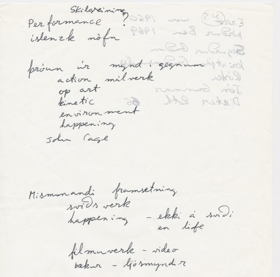 Skilgreining
Performance ?
íslenzk nöfn
þróun úr mynd í gegnum
action málverk
op art
kinetic
environment
happening
John Cage
Mismunandi framsetning
sviðsverk
happening - ekki á sviði
en life
filmuverk - video
bækur - ljósmyndir